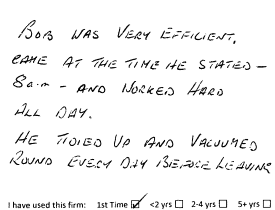 BOB WAS VERY EFFICIENT.
CAME AT THE TIME HE STATED -
8a.m - AND WORKED HARD
ALL DAY.
HE TIDIED UP AND VACUUMED
ROUND EVERY DAY BEFORE LEAVING
I have used this firm: 1st Time ☑ <2 yrs ☐ 2-4 yrs ☐ 5+ yrs ☐